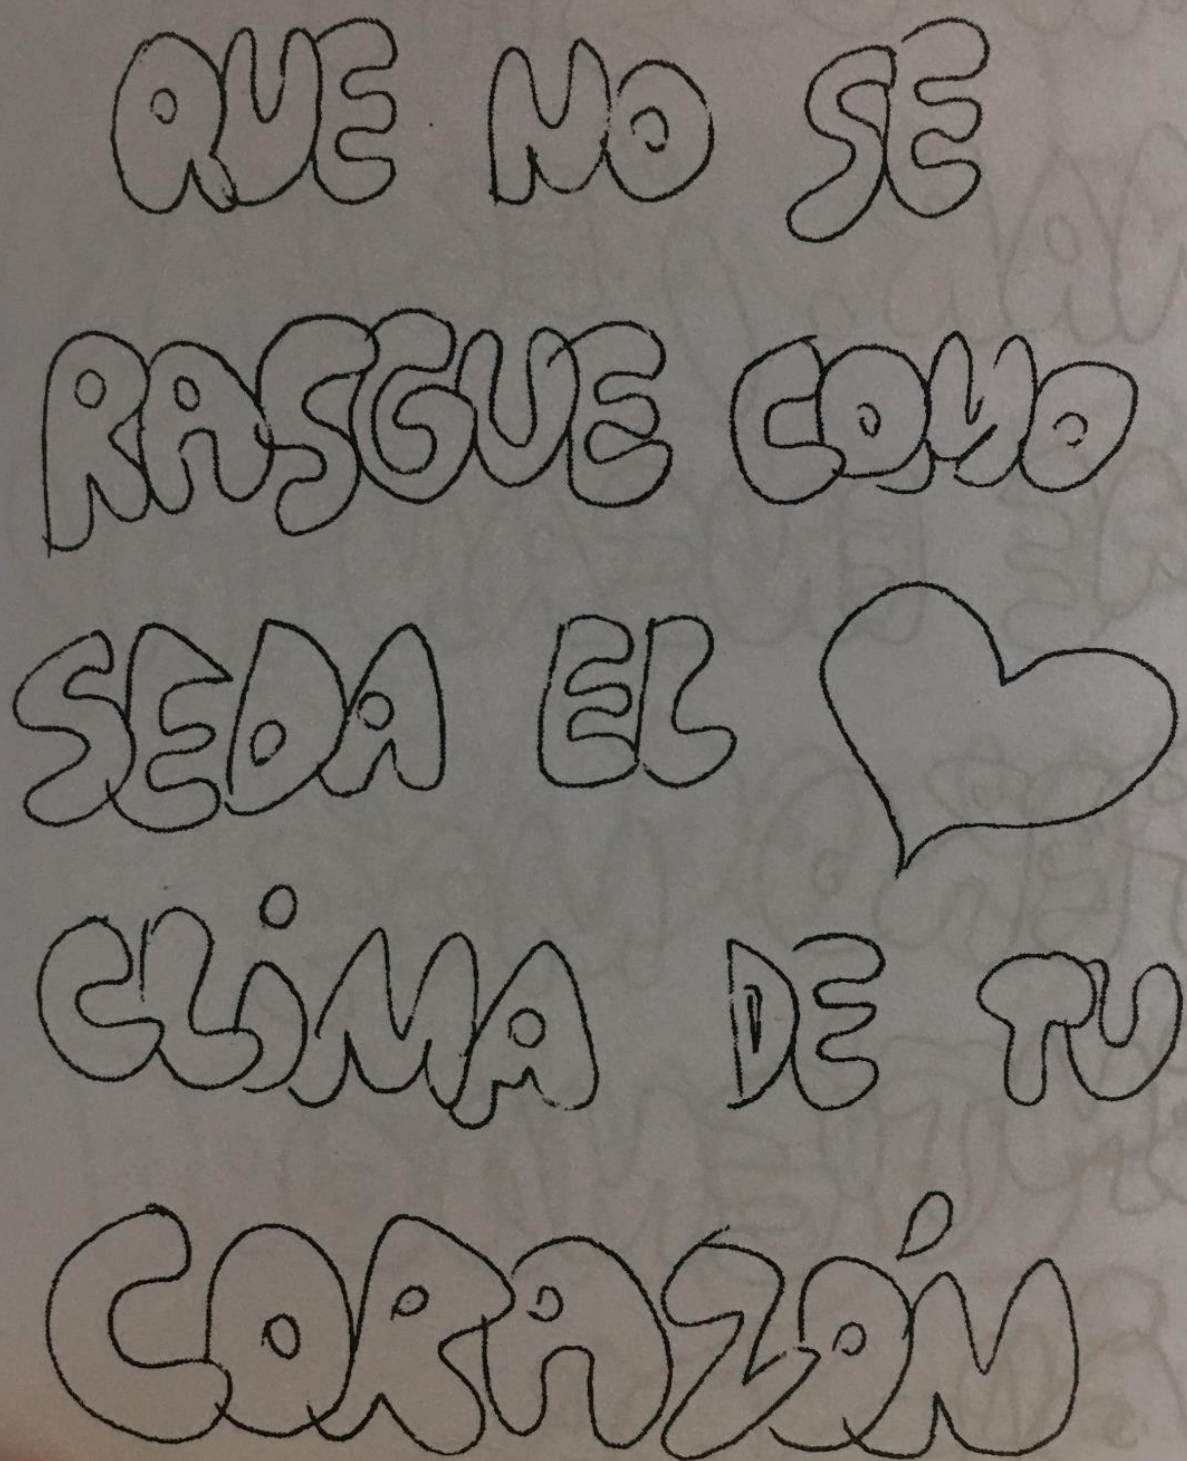 QUE NO SE
RASGUE COMO
SEDA EL
CLiMA DE TU
CORAZÓN